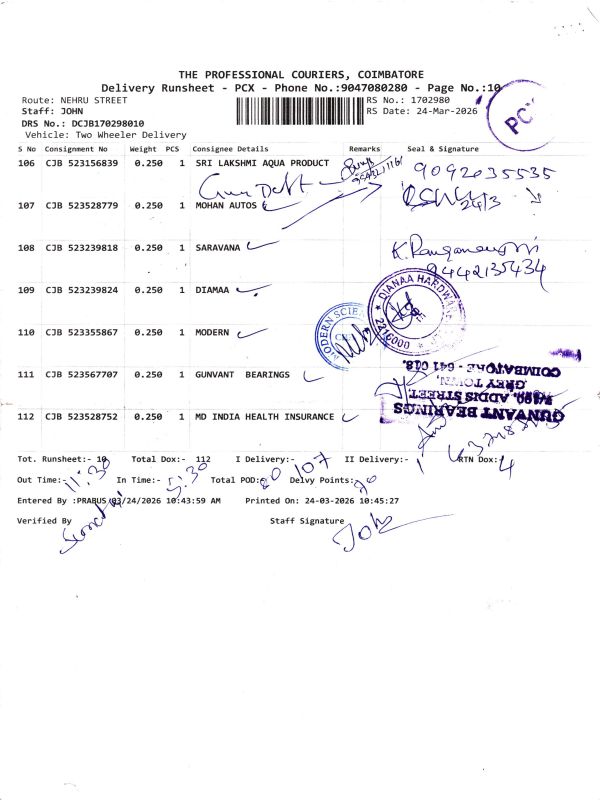 THE PROFESSIONAL COURIERS, COIMBATORE
Delivery Runsheet - PCX - Phone No.:9047080280 - Page No.:10
PCX
Route: NEHRU STREET
RS No.: 1702980
Staff: JOHN
RS Date: 24-Mar-2026
DRS No.: DCJB170298010
Vehicle: Two Wheeler Delivery
S No Consignment No Weight PCS Consignee Details Remarks Seal & Signature
106 CJB 523156839 0.250 1 SRI LAKSHMI AQUA PRODUCT 9092035535
107 CJB 523528779 0.250 1 MOHAN AUTOS 24/3
108 CJB 523239818 0.250 1 SARAVANA
9442135434
109 CJB 523239824 0.250 1 DIAMAA
DIANAA HARDWARE
2216000
110 CJB 523355867 0.250 1 MODERN
MODERN SCIEN
111 CJB 523567707 0.250 1 GUNVANT BEARINGS
GUNVANT BEARINGS
ADDIS STREET,
GREY TOWN,
COIMBATORE - 641 018.
112 CJB 523528752 0.250 1 MD INDIA HEALTH INSURANCE
Tot. Runsheet:- 10 Total Dox:- 112 I Delivery:- 107 II Delivery:- RTN Dox:- 4
Out Time:- 11:30 In Time:- 5:30 Total POD:- Delvy Points:-
Entered By :PRABUS 03/24/2026 10:43:59 AM Printed On: 24-03-2026 10:45:27
Verified By Staff Signature
John